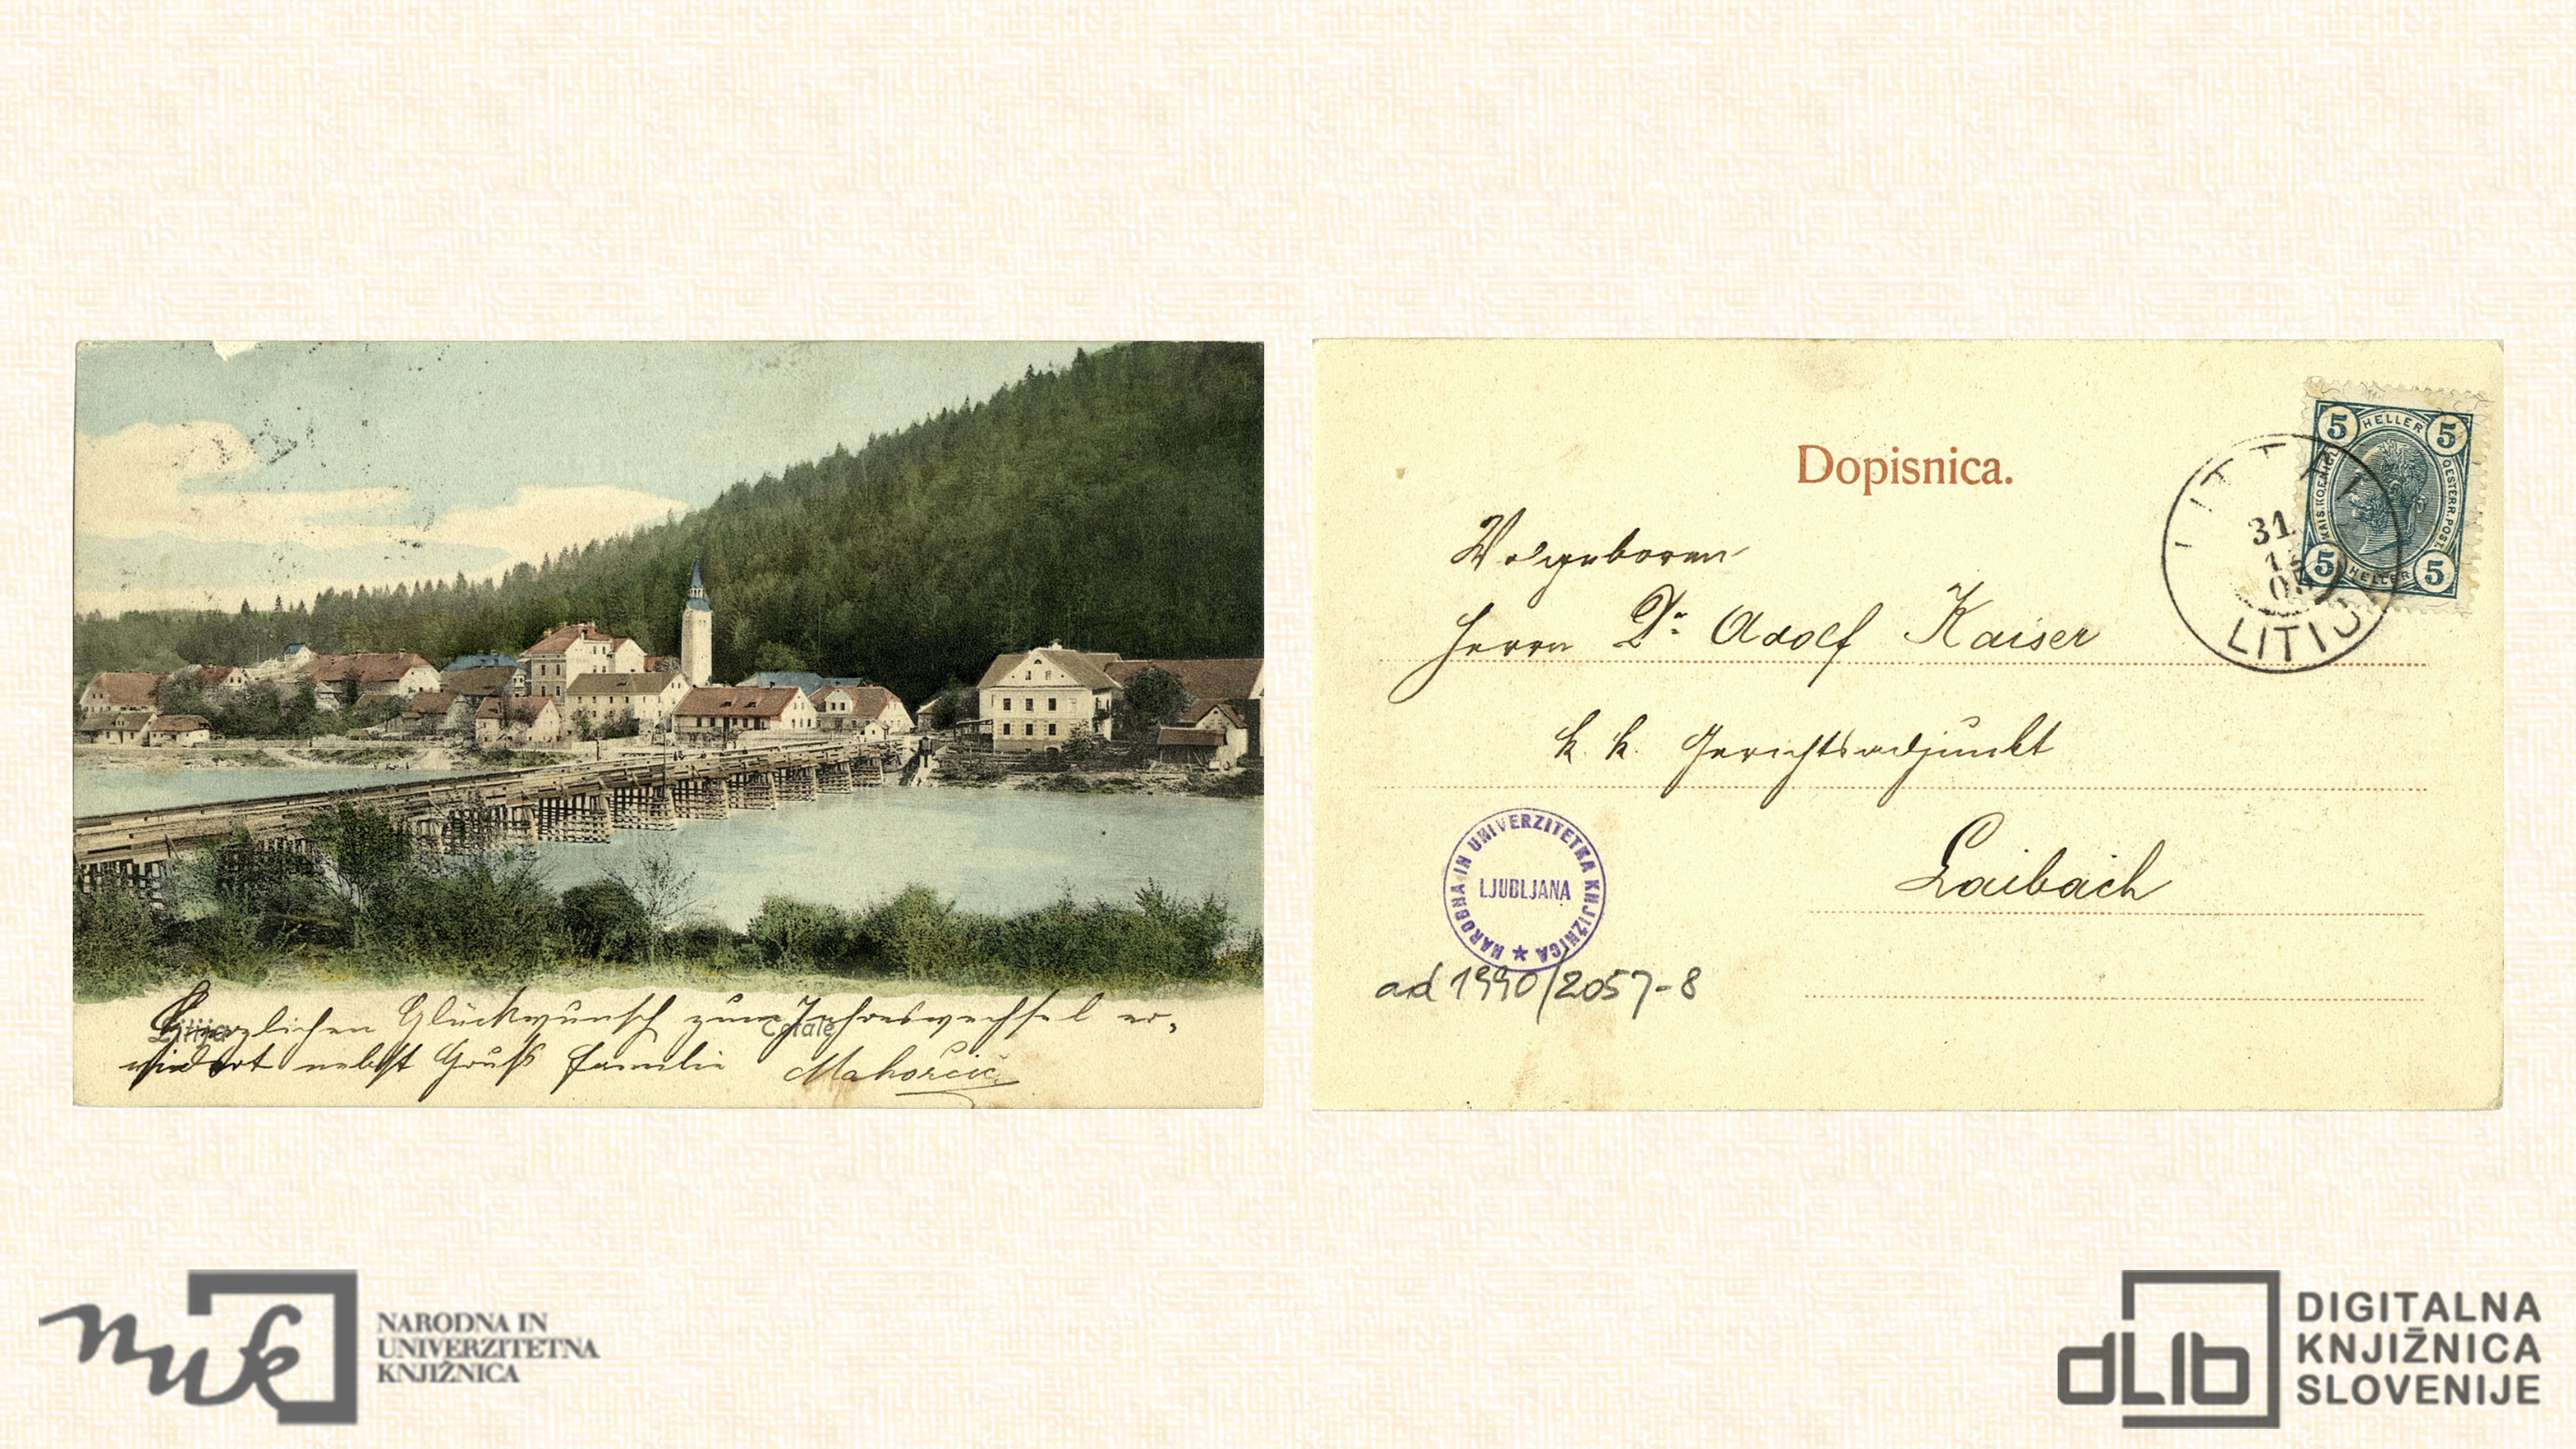 Litija
Calale
Herzlichen Glückwunsch zum Jahreswechsel er-
widert nebst Gruß Familie Mahorčič
Dopisnica.
Wolgeboren
Herrn Dr Adolf Kaiser
k. k. Gerichtsadjunkt
Laibach
5 HELLER 5
KAIS. KOENIGL. OESTERR. POST.
5 HELLER 5
31
LITIJA
NARODNA IN UNIVERZITETNA KNJIŽNICA
LJUBLJANA
ad 1990/2057-8
nuk
NARODNA IN
UNIVERZITETNA
KNJIŽNICA
dLib
DIGITALNA
KNJIŽNICA
SLOVENIJE